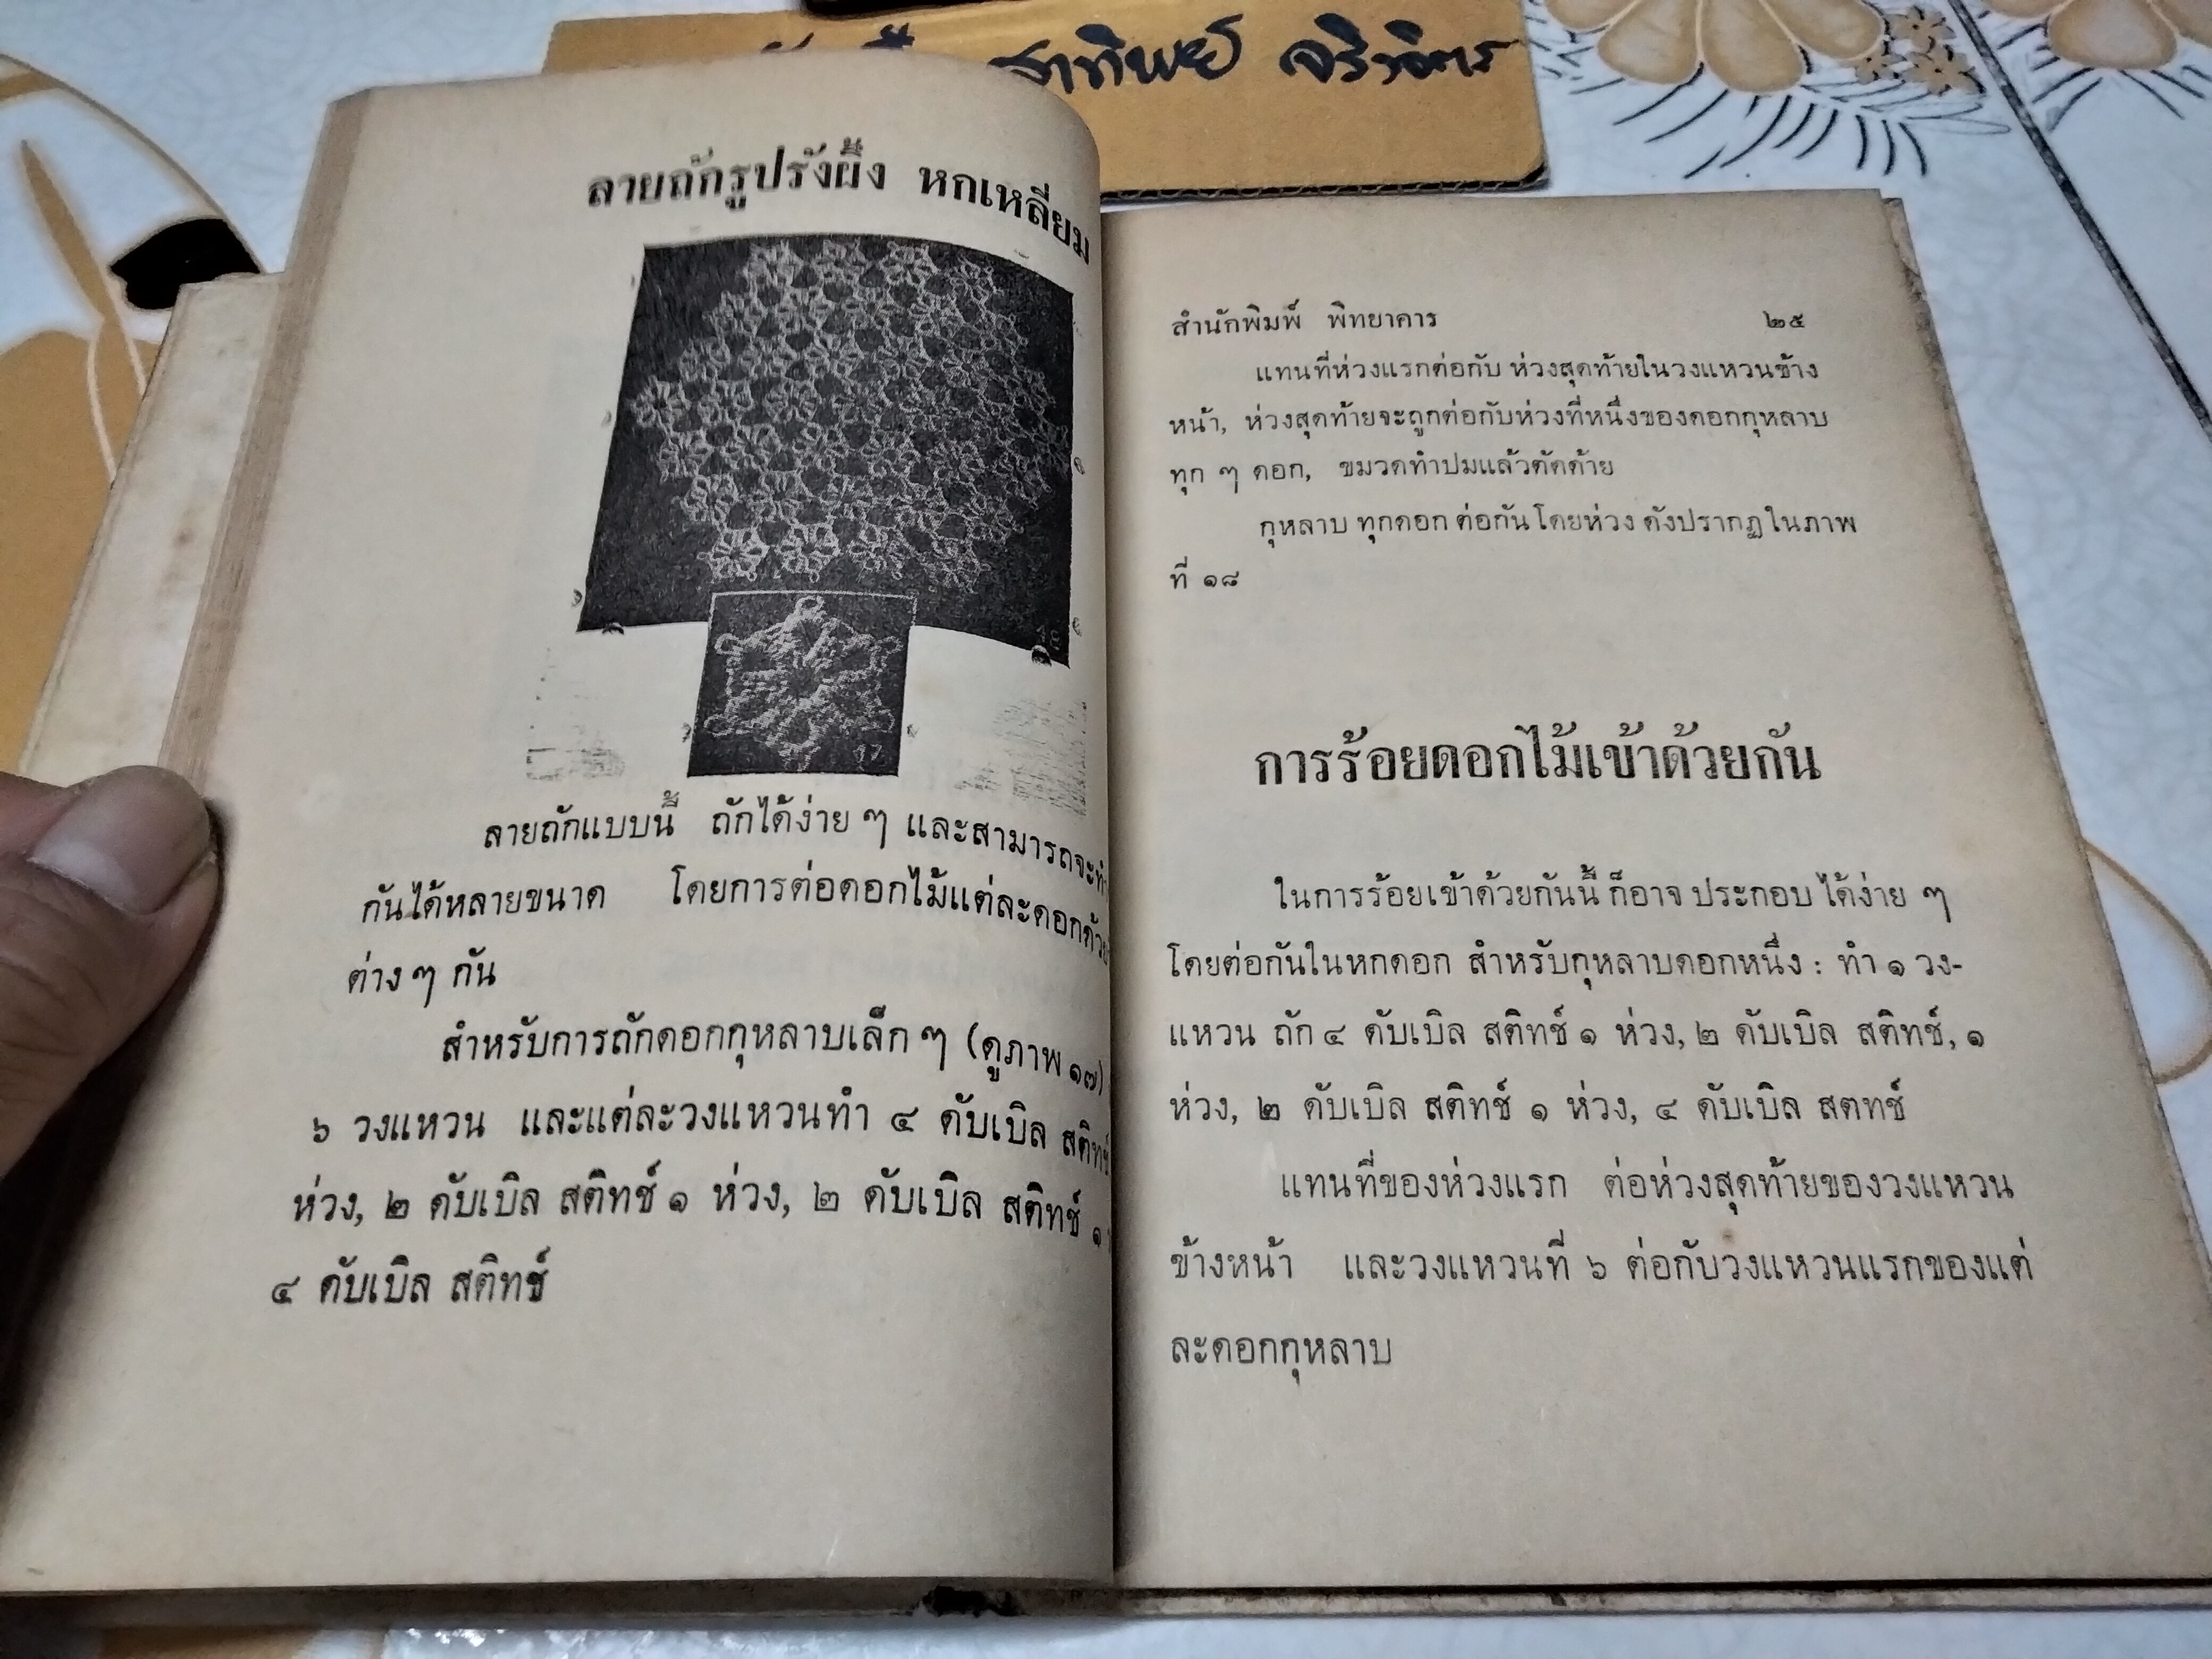 าทิพย์ จริงจิตร
ลายถักรูปรังผึ้ง หกเหลี่ยม
17
ลายถักแบบนี้ ถักได้ง่าย ๆ และสามารถจะทำ
กันได้หลายขนาด โดยการต่อดอกไม้แต่ละดอกด้วย
ต่าง ๆ กัน
สำหรับการถักดอกกุหลาบเล็ก ๆ (ดูภาพ ๑๗)
๖ วงแหวน และแต่ละวงแหวนทำ ๔ ดับเบิล สติทช์
ห่วง, ๒ ดับเบิล สติทช์ ๑ ห่วง, ๒ ดับเบิล สติทช์ ๑
๔ ดับเบิล สติทช์
สำนักพิมพ์ พิทยาคาร ๒๕
แทนที่ห่วงแรกต่อกับ ห่วงสุดท้ายในวงแหวนข้าง
หน้า, ห่วงสุดท้ายจะถูกต่อกับห่วงที่หนึ่งของดอกกุหลาบ
ทุก ๆ ดอก, ขมวดทำปมแล้วตัดด้าย
กุหลาบ ทุกดอก ต่อกัน โดยห่วง ดังปรากฏ ในภาพ
ที่ ๑๘
การร้อยดอกไม้เข้าด้วยกัน
ในการร้อยเข้าด้วยกันนี้ ก็อาจ ประกอบ ได้ง่าย ๆ
โดยต่อกันในหกดอก สำหรับกุหลาบดอกหนึ่ง : ทำ ๑ วง-
แหวน ถัก ๔ ดับเบิล สติทช์ ๑ ห่วง, ๒ ดับเบิล สติทช์, ๑
ห่วง, ๒ ดับเบิล สติทช์ ๑ ห่วง, ๔ ดับเบิล สตทช์
แทนที่ของห่วงแรก ต่อห่วงสุดท้ายของวงแหวน
ข้างหน้า และวงแหวนที่ ๖ ต่อกับวงแหวนแรกของแต่
ละดอกกุหลาบ